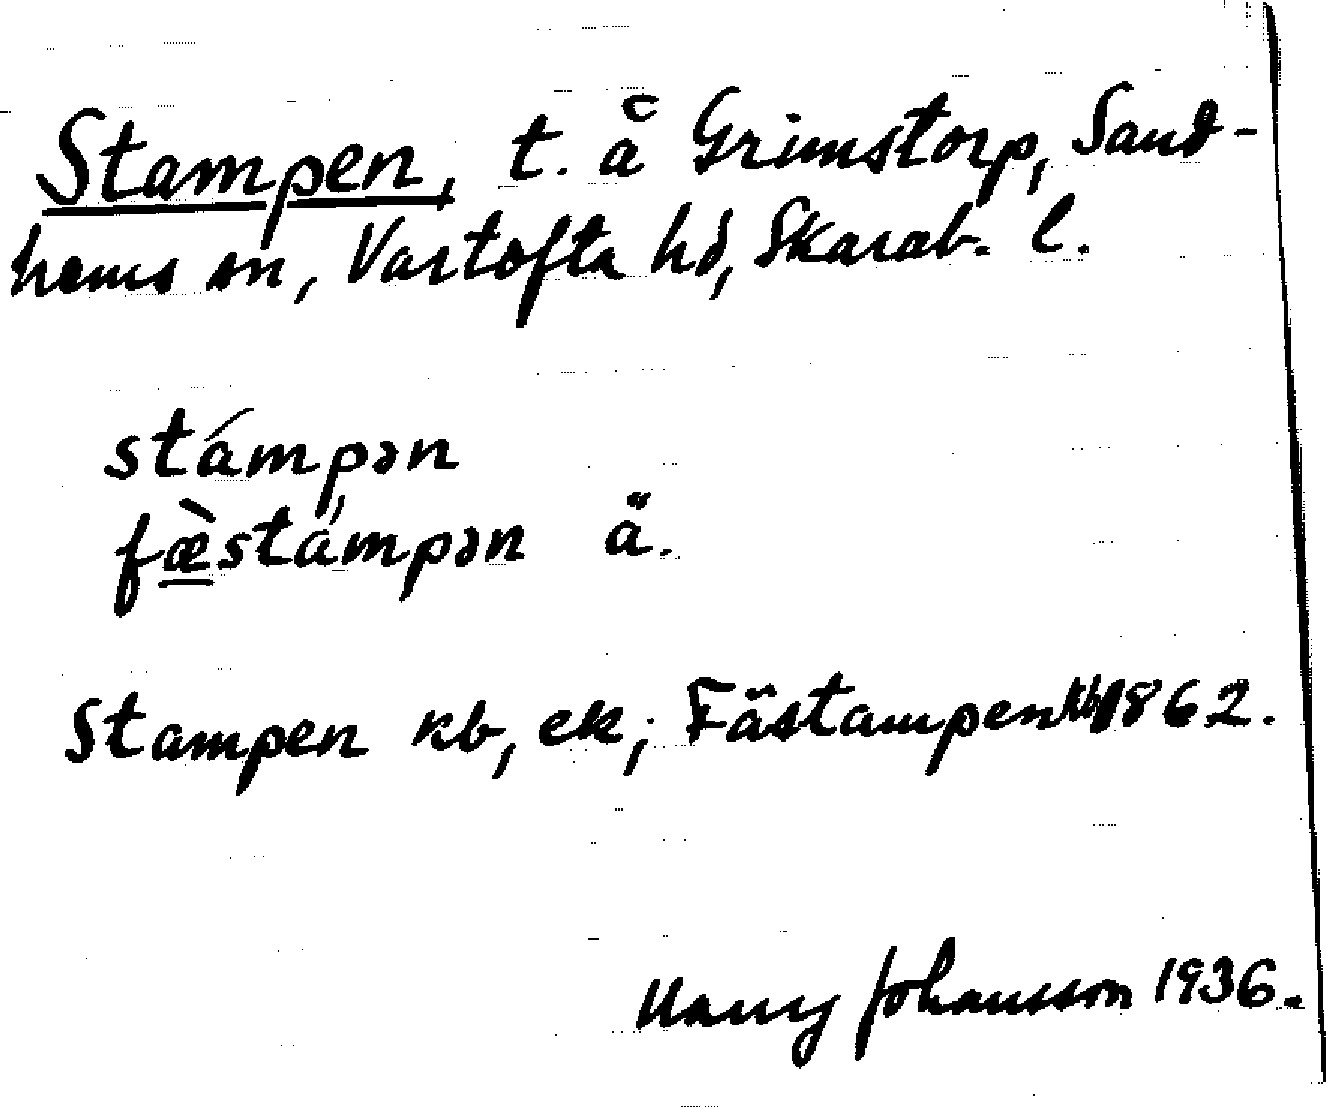 Stampen, t. å Grimstorp, Sand-
hems sn, Vartofta hd, Skarab. l.
stámpən
fæ̲̀stámpən ä.
Stampen kb, ek; Fästampen kb 1862.
Harry Johansson 1936.